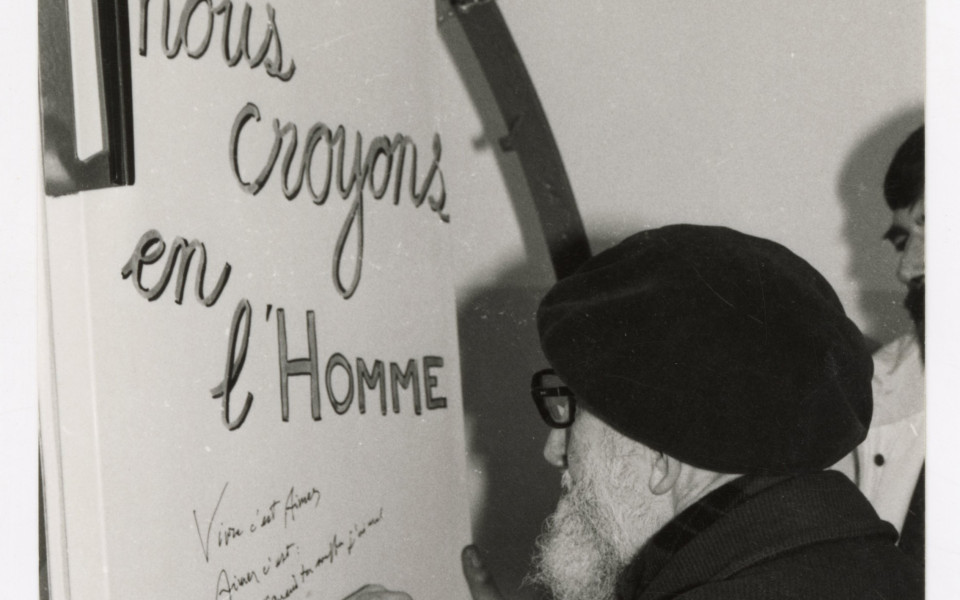 nous
croyons
en
l'HOMME
Vivre c'est Aimer
Aimer c'est:
quand tu souffres j'ai mal